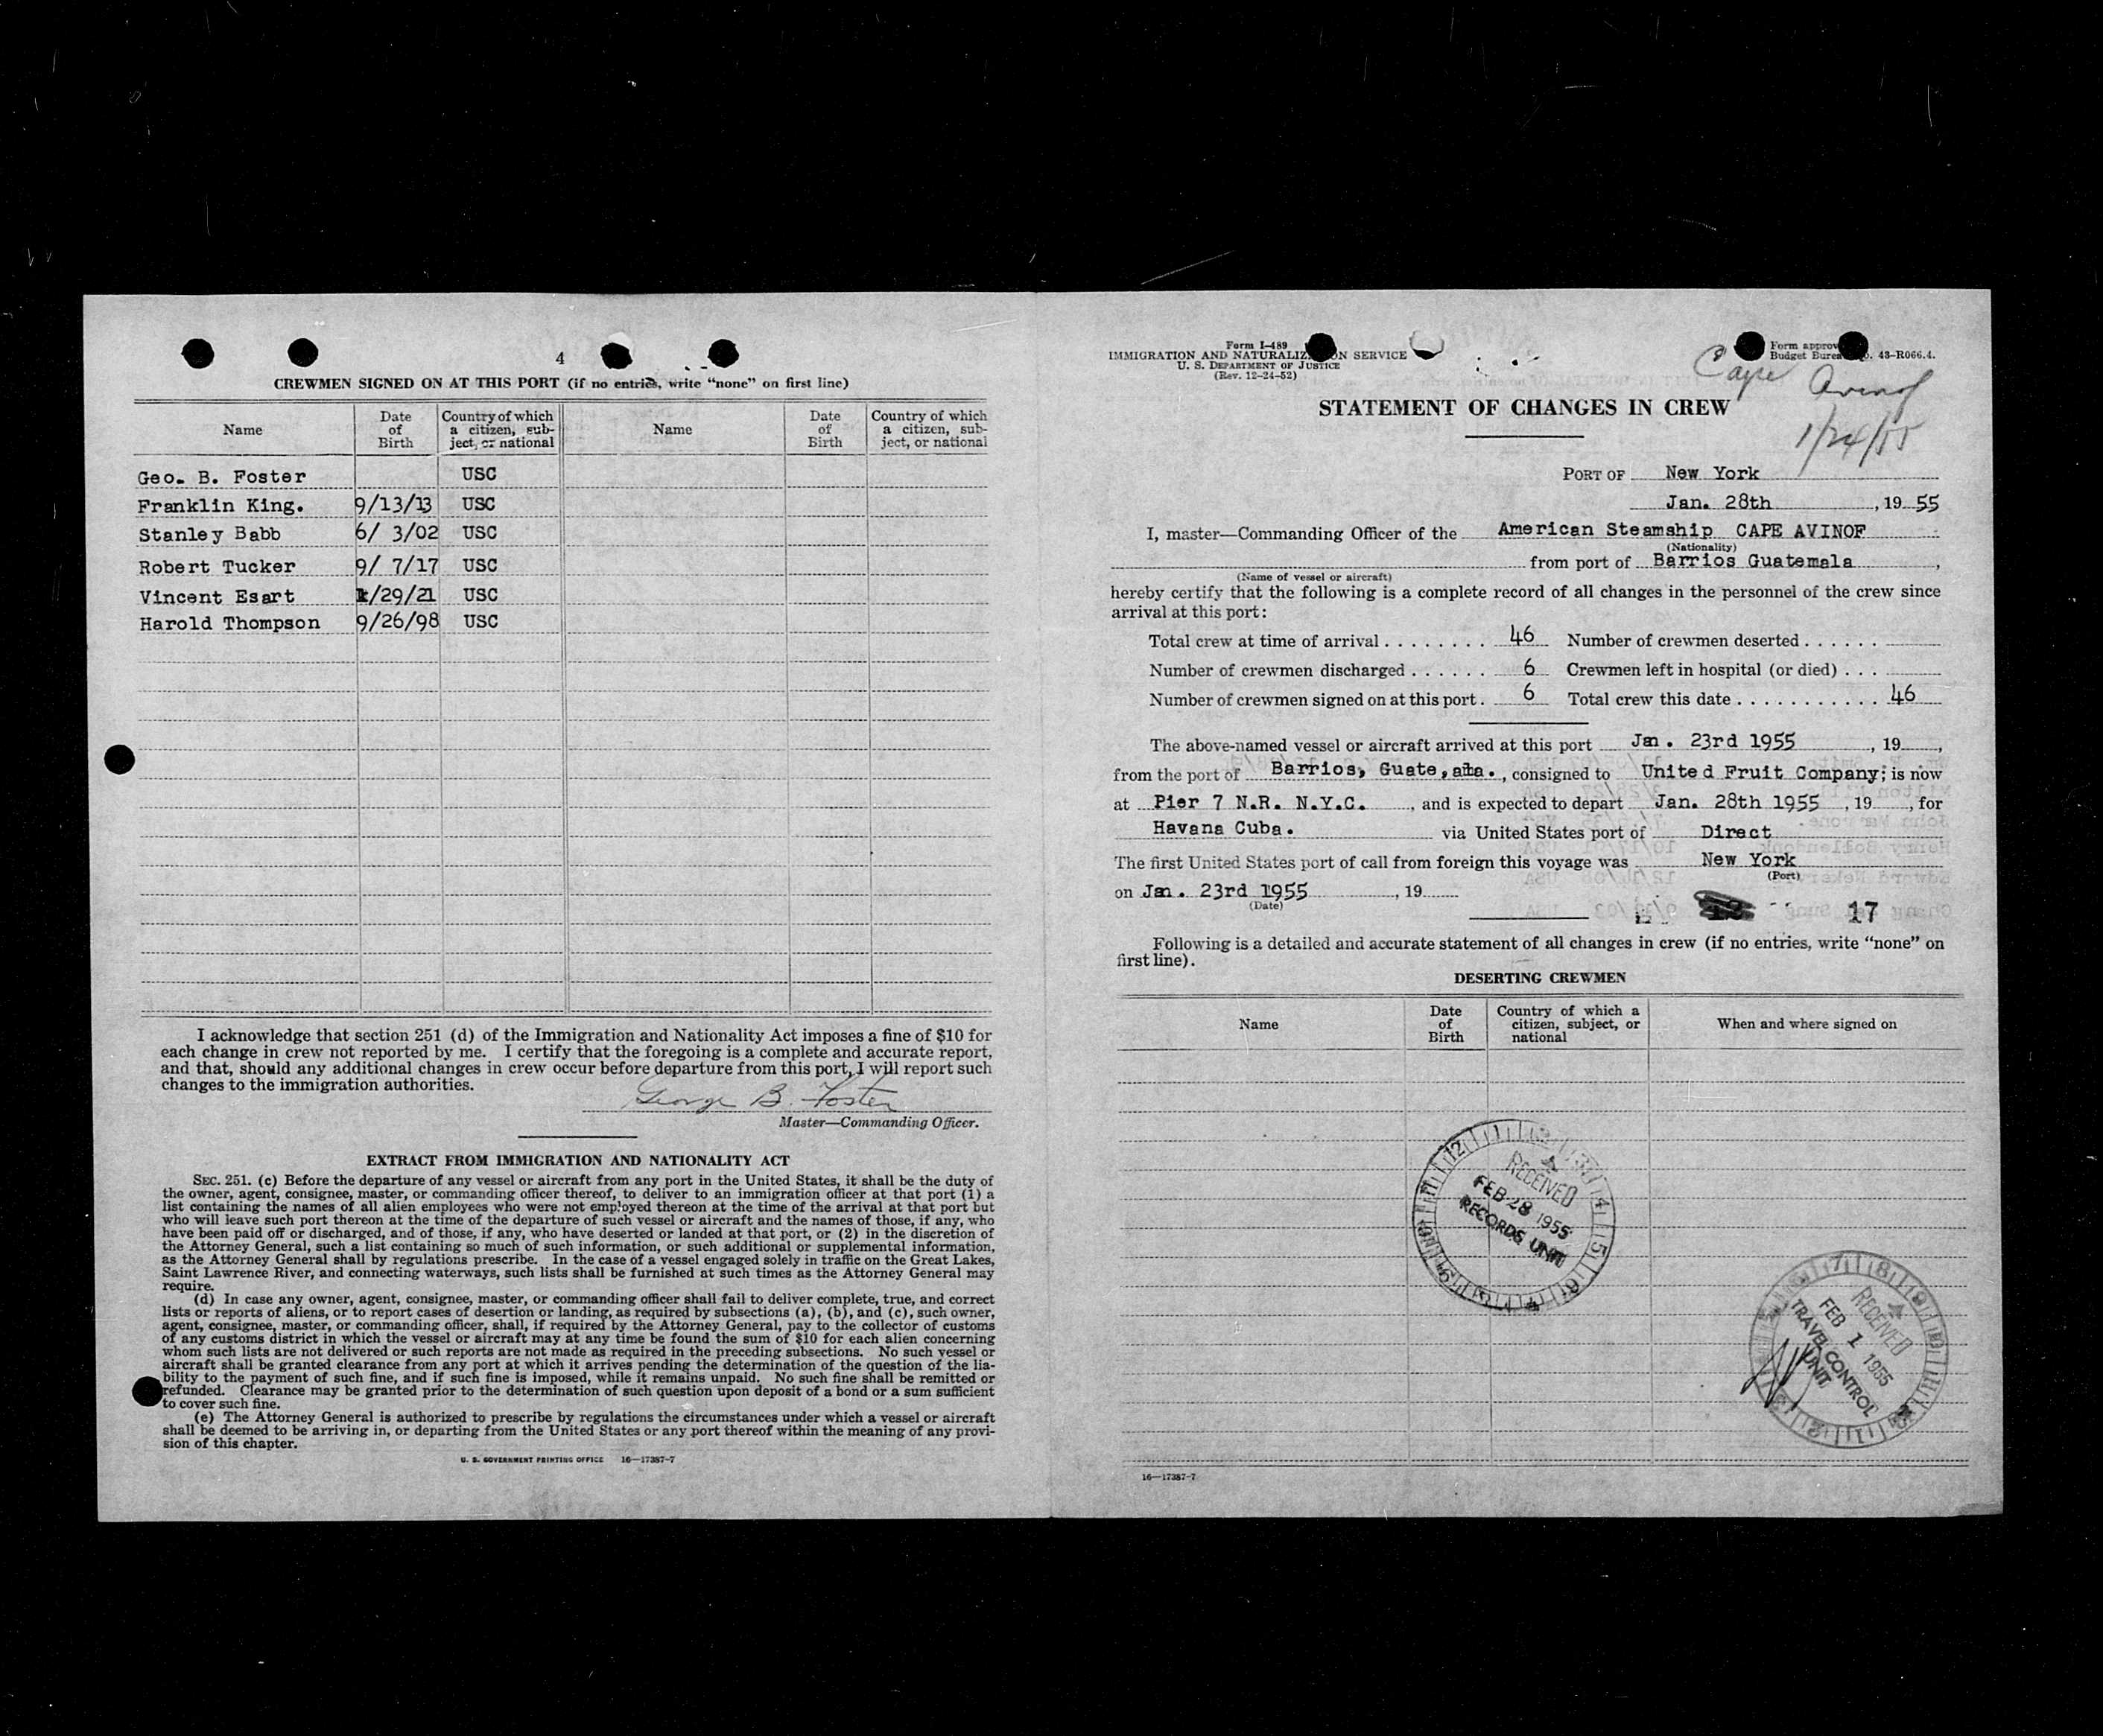 4
CREWMEN SIGNED ON AT THIS PORT (if no entries, write "none" on first line)
Name Date of Birth Country of which a citizen, sub- ject, or national Name Date of Birth Country of which a citizen, sub- ject, or national
Geo. B. Foster USC
Franklin King. 9/13/13 USC
Stanley Babb 6/ 3/02 USC
Robert Tucker 9/ 7/17 USC
Vincent Esart 1/29/21 USC
Harold Thompson 9/26/98 USC
I acknowledge that section 251 (d) of the Immigration and Nationality Act imposes a fine of $10 for
each change in crew not reported by me. I certify that the foregoing is a complete and accurate report,
and that, should any additional changes in crew occur before departure from this port, I will report such
changes to the immigration authorities.
George B. Foster
Master—Commanding Officer.
EXTRACT FROM IMMIGRATION AND NATIONALITY ACT
SEC. 251. (c) Before the departure of any vessel or aircraft from any port in the United States, it shall be the duty of
the owner, agent, consignee, master, or commanding officer thereof, to deliver to an immigration officer at that port (1) a
list containing the names of all alien employees who were not employed thereon at the time of the arrival at that port but
who will leave such port thereon at the time of the departure of such vessel or aircraft and the names of those, if any, who
have been paid off or discharged, and of those, if any, who have deserted or landed at that port, or (2) in the discretion of
the Attorney General, such a list containing so much of such information, or such additional or supplemental information,
as the Attorney General shall by regulations prescribe. In the case of a vessel engaged solely in traffic on the Great Lakes,
Saint Lawrence River, and connecting waterways, such lists shall be furnished at such times as the Attorney General may
require.
(d) In case any owner, agent, consignee, master, or commanding officer shall fail to deliver complete, true, and correct
lists or reports of aliens, or to report cases of desertion or landing, as required by subsections (a), (b), and (c), such owner,
agent, consignee, master, or commanding officer, shall, if required by the Attorney General, pay to the collector of customs
of any customs district in which the vessel or aircraft may at any time be found the sum of $10 for each alien concerning
whom such lists are not delivered or such reports are not made as required in the preceding subsections. No such vessel or
aircraft shall be granted clearance from any port at which it arrives pending the determination of the question of the lia-
bility to the payment of such fine, and if such fine is imposed, while it remains unpaid. No such fine shall be remitted or
refunded. Clearance may be granted prior to the determination of such question upon deposit of a bond or a sum sufficient
to cover such fine.
(e) The Attorney General is authorized to prescribe by regulations the circumstances under which a vessel or aircraft
shall be deemed to be arriving in, or departing from the United States or any port thereof within the meaning of any provi-
sion of this chapter.
U. S. GOVERNMENT PRINTING OFFICE 16—17387-7
Form I-489
IMMIGRATION AND NATURALIZ ON SERVICE
U. S. DEPARTMENT OF JUSTICE
(Rev. 12-24-52)
Form approv
Budget Burea 43-R066.4.
Cape Avinof
1/24/55
STATEMENT OF CHANGES IN CREW
PORT OF New York
Jan. 28th, 19 55
I, master—Commanding Officer of the American Steamship CAPE AVINOF
(Nationality)
from port of Barrios Guatemala,
(Name of vessel or aircraft)
hereby certify that the following is a complete record of all changes in the personnel of the crew since
arrival at this port:
Total crew at time of arrival 46 Number of crewmen deserted
Number of crewmen discharged 6 Crewmen left in hospital (or died)
Number of crewmen signed on at this port. 6 Total crew this date 46
The above-named vessel or aircraft arrived at this port Jan. 23rd 1955, 19,
from the port of Barrios, Guate,ala., consigned to United Fruit Company; is now
at Pier 7 N.R. N.Y.C., and is expected to depart Jan. 28th 1955, 19, for
Havana Cuba. via United States port of Direct
The first United States port of call from foreign this voyage was New York
(Port)
on Jan. 23rd 1955, 19
(Date)
17
Following is a detailed and accurate statement of all changes in crew (if no entries, write "none" on
first line).
DESERTING CREWMEN
Name Date of Birth Country of which a citizen, subject, or national When and where signed on
RECEIVED
FEB 28 1955
RECORDS UNIT
RECEIVED
FEB 1 1955
TRAVEL CONTROL
UNIT
16—17387-7